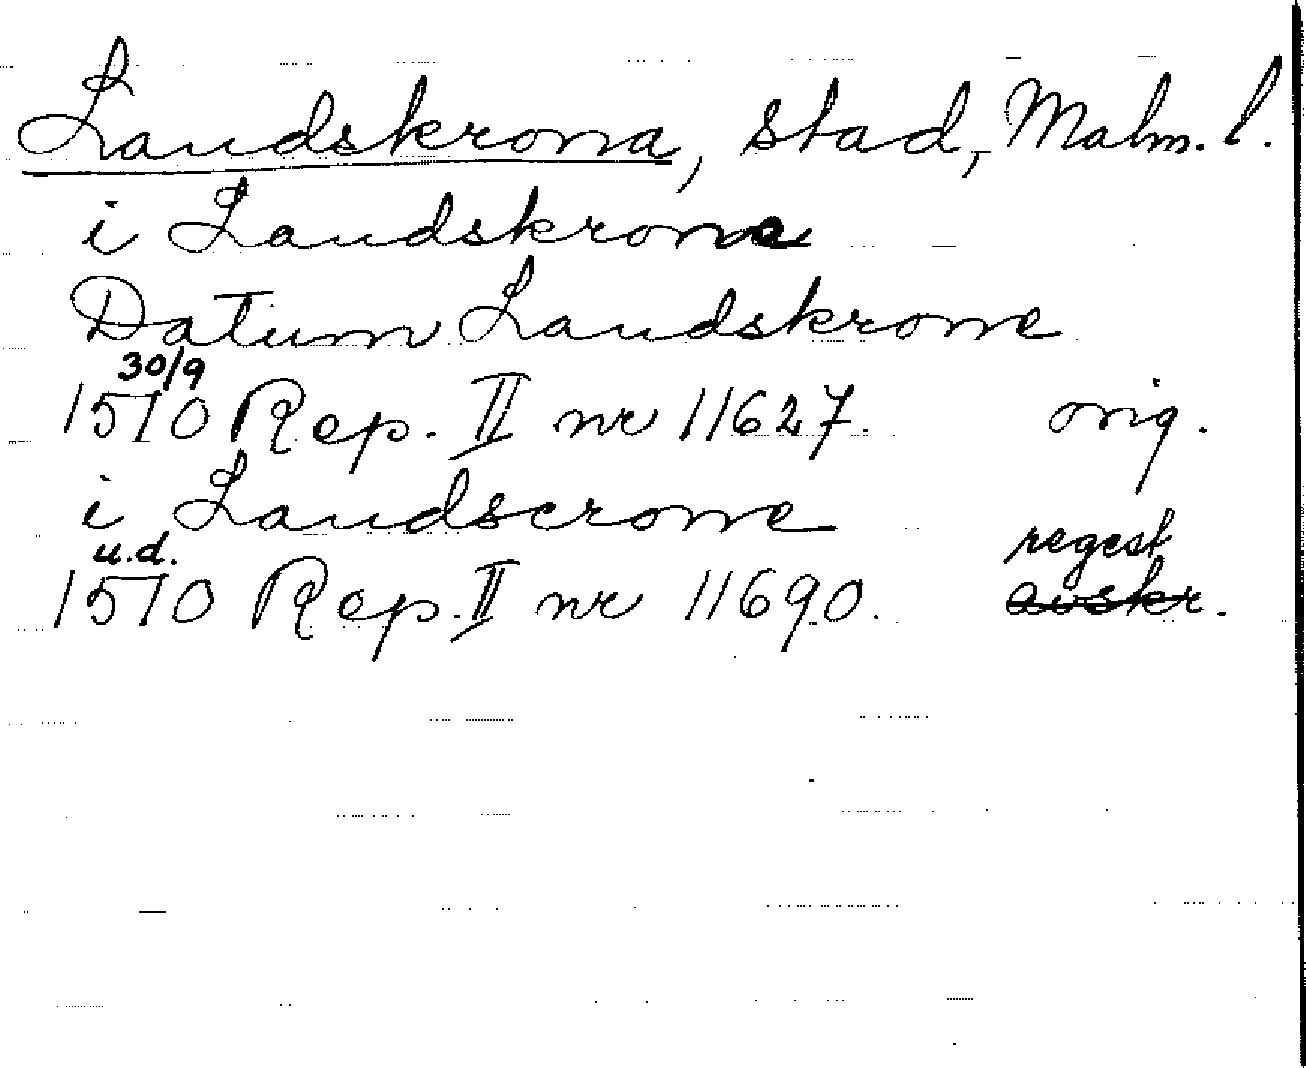 Landskrona, stad, Malm. l.
i Landskrone
Datum Landskrone
30/9
1510 Rep. II nr 11627. orig.
i Landscrone
u.d. regest
1510 Rep. II nr 11690. avskr.